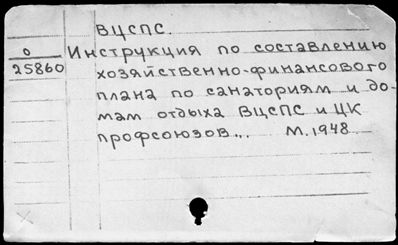 ВЦСПС.
О Инструкция по составлению
25860 хозяйственно-финансового
плана по санаториям и до-
мам отдыха ВЦСПС и ЦК
профсоюзов... М.1948